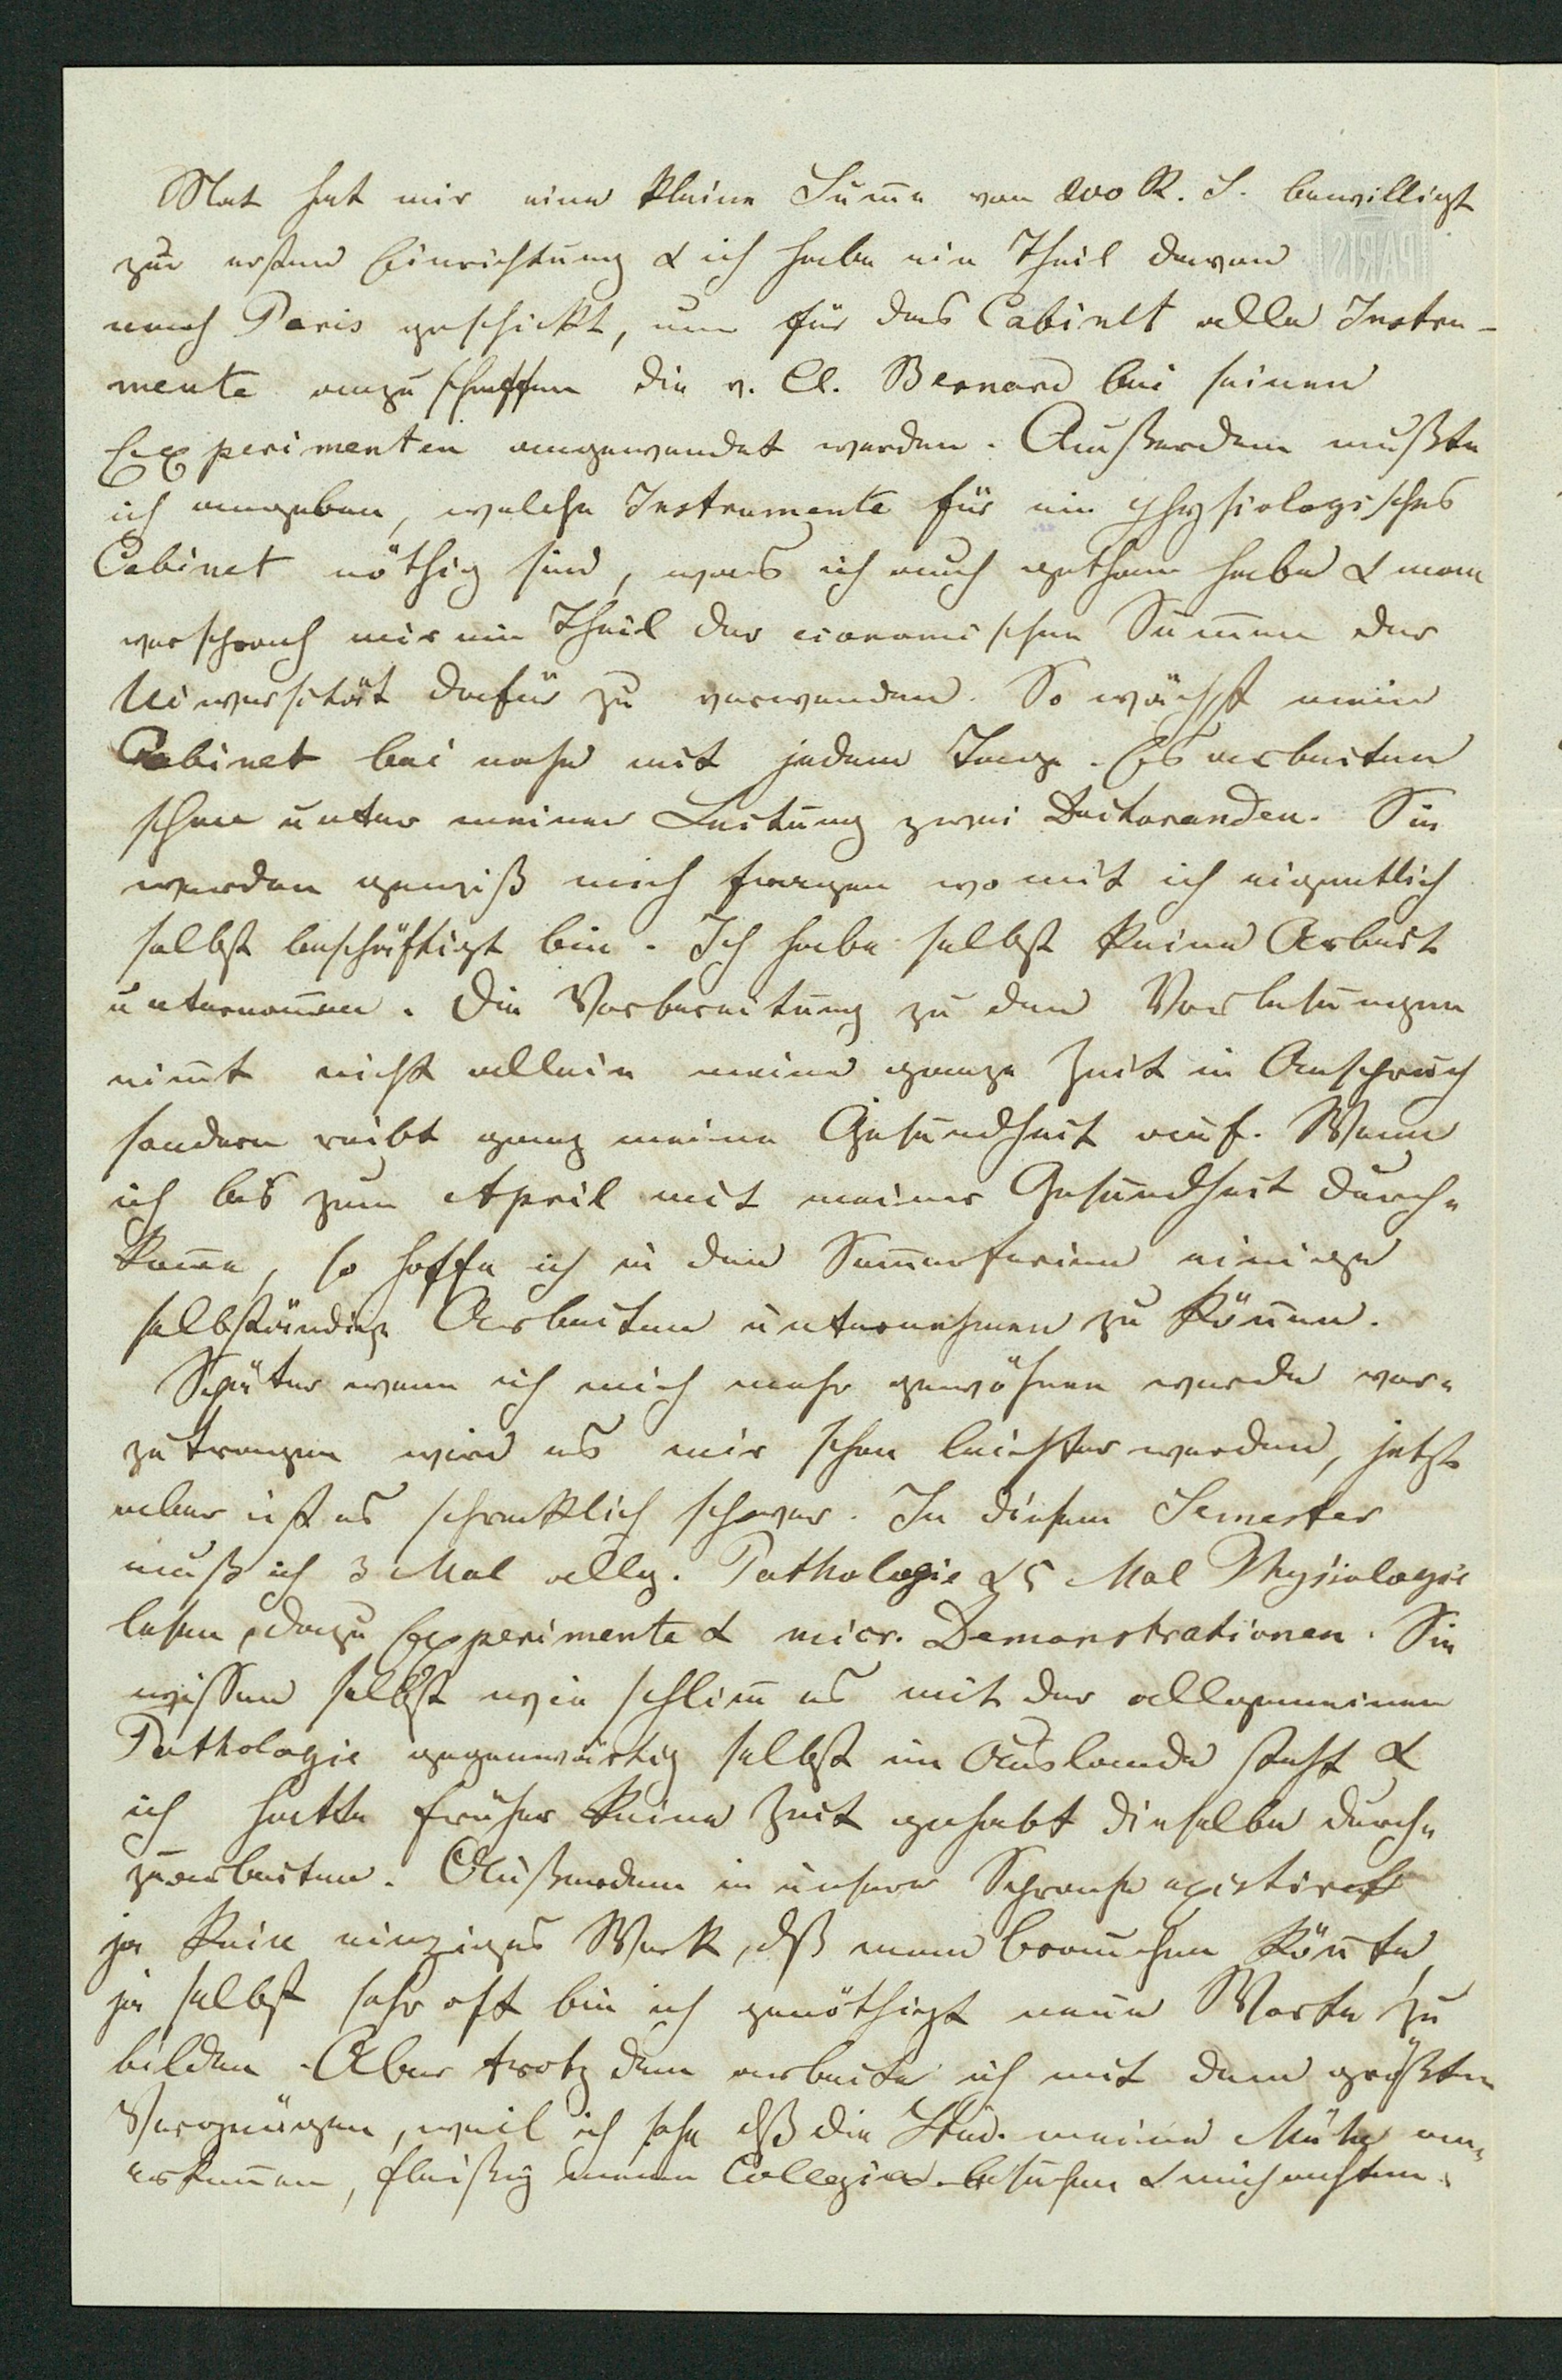 Mat hat mir eine kleine Sum̄e von 200 R. S. bewilligt
zur ersten Einrichtung & ich habe ein Theil davon
nach Paris geschickt, um für das Cabinet alle Instru-
mente anzuschaffen die v. Cl. Bernard bei seinen
Experimenten angewendet werden. Außerdem mußte
ich angeben, welche Instrumente für ein physiologisches
Cabinet nöthig sind, was ich auch gethan habe & man
versprach mir ein Theil der Summen der
Universität dafür zu verwenden. So wächst mein
Cabinet bei nahe mit jedem Tage. Es arbeiten
schon unter meiner Leitung zwei Doctoranden. Sie
werden gewiß mich fragen womit ich eigentlich
selbst beschäftigt bin. Ich habe selbst keine Arbeit
unternom̄en. Die Vorbereitung zu den Vorlesungen
nim̄t nicht allein meine ganze Zeit in Anspruch
sondern reibt ganz meine Gesundheit auf. Wenn
ich bis zum April mit meiner Gesundheit durch-
kom̄e, so hoffe ich in den Som̄erferien einige
selbständige Arbeiten unternehmen zu kön̄en.
Später wenn ich mich mehr gewöhnen werde vor-
zutragen wird es mir schon leichter werden, jetzt
aber ist es schrecklich schwer. In diesem Semester
muß ich 3 Mal allg. Pathologie & 5 Mal Physiologie
lesen, dazu Experimente & micr. Demonstrationen. Sie
wissen selbst wie schlim̄ es mit der allgemeinen
Pathologie gegenwärtig selbst im Auslande steht &
ich hatte früher keine Zeit gehabt dieselbe durch-
zuarbeiten. Außerdem in unserer Sprache existirt
ja kein einziges Werk, dß man brauchen kön̄te,
ja selbst sehr oft bin ich genöthigt neue Worte zu
bilden. Aber trotz dem arbeite ich mit dem größten
Vergnügen, weil ich sehe dß die Stud. meine Mühe an-
erken̄en, fleißig meine Collegien besuchen & mich achten.
PARIS